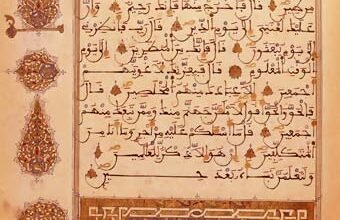 عليك لعنتي إلى يوم الدين قال رب فأنظرني
إلى يوم يبعثون قال فإنك من المنظرين إلى يوم
الوقت المعلوم قال فبعزتك لأغوينهم
أجمعين إلا عبادك منهم المخلصين
قال فالحق والحق أقول لأملأن جهنم منك وممن تبعك منهم
أجمعين قل ما أسألكم عليه من أجر وما أنا من
المتكلفين إن هو إلا ذكر للعالمين
ولتعلمن نبأه بعد حين